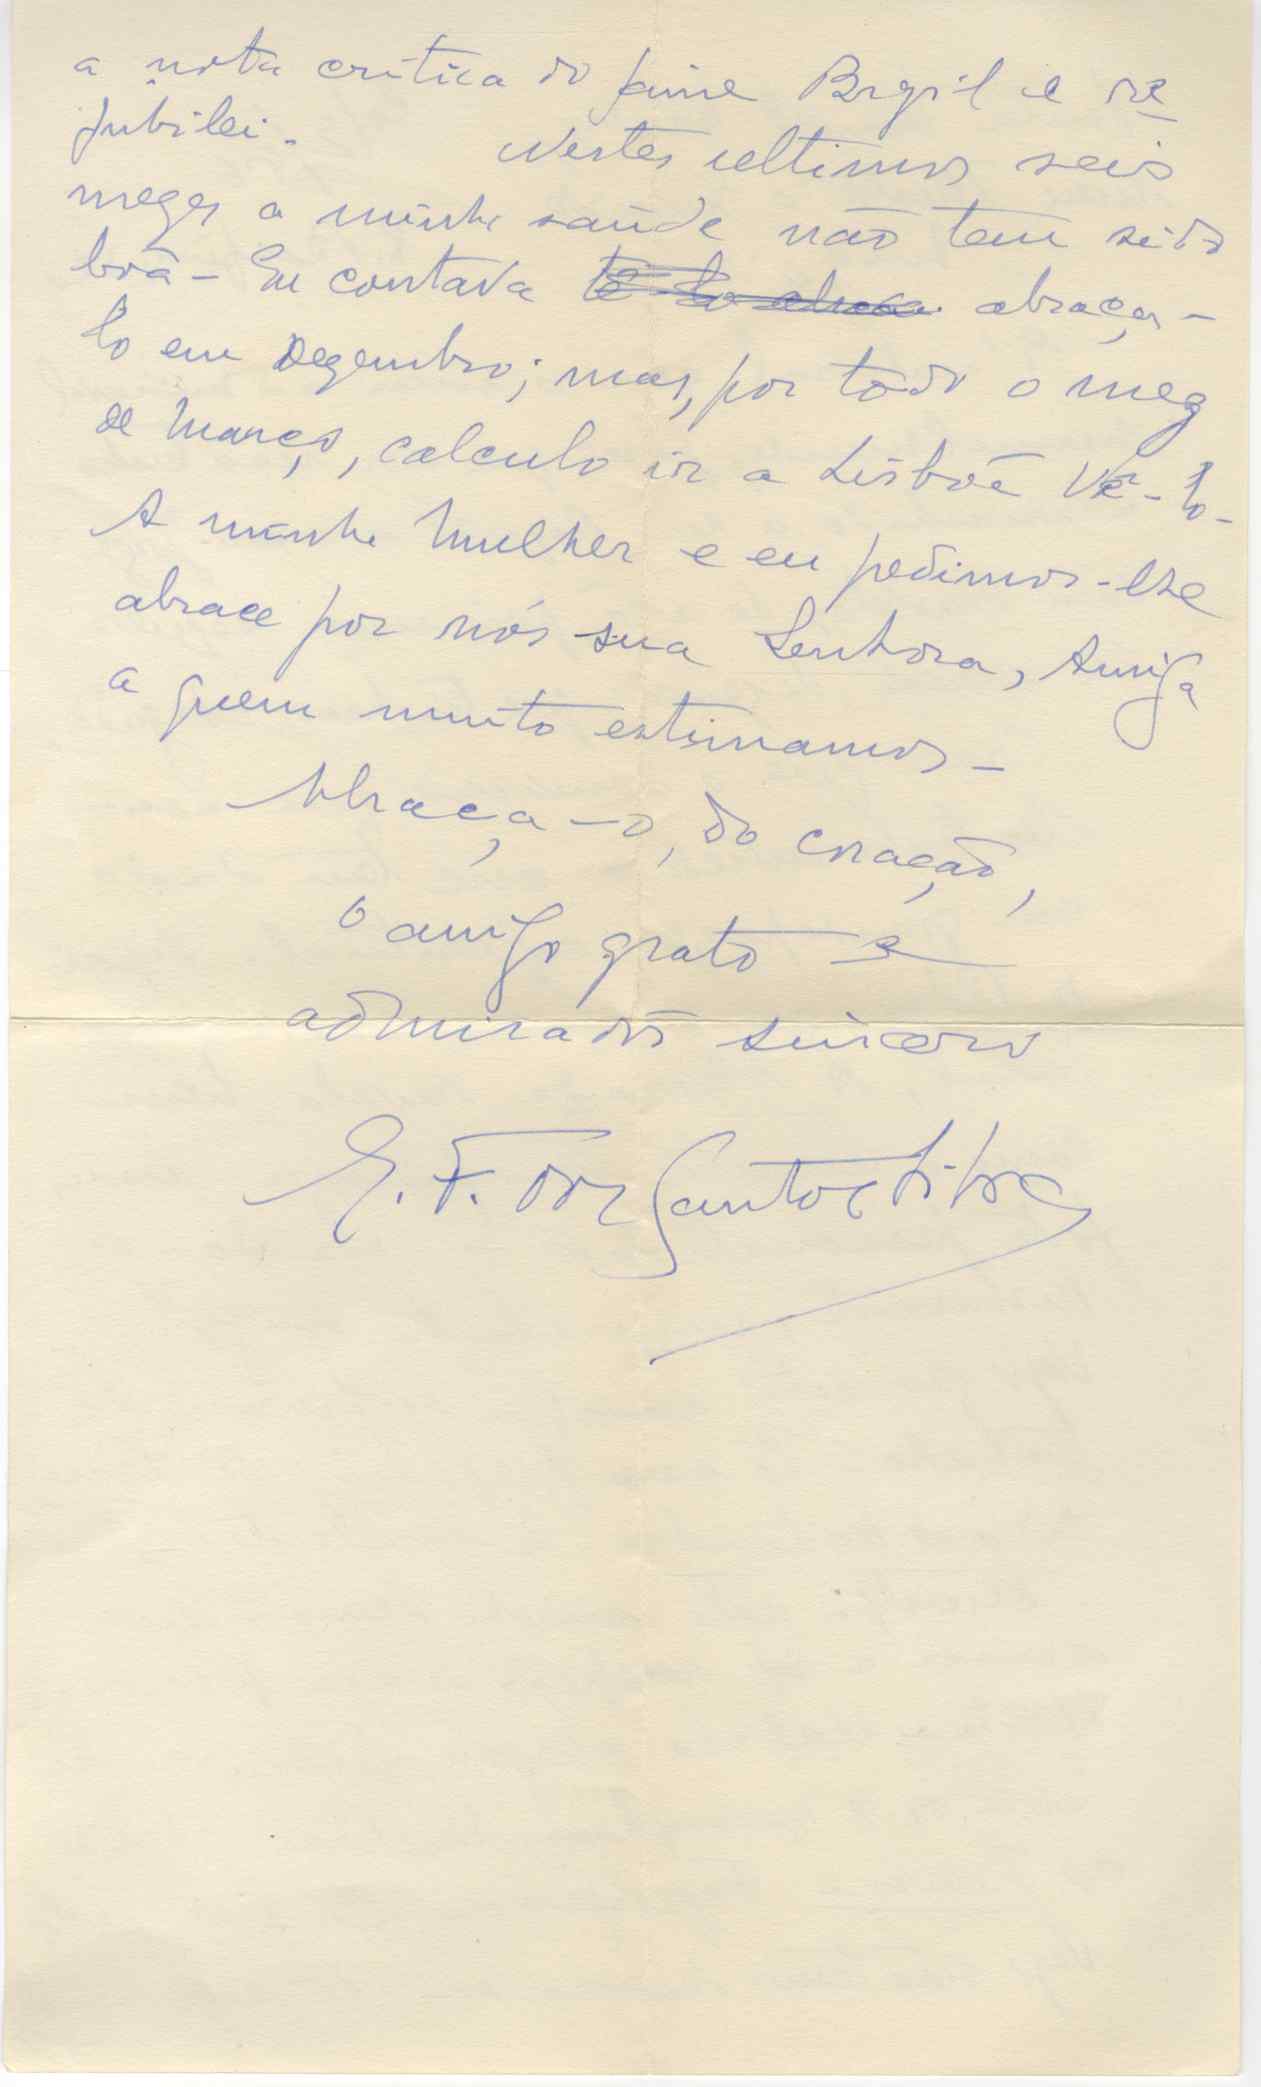 a nota critica do Jaime Brazil e re
jubilei. Nestes ultimos seis
mezes a minha saúde não tem sido
boa - Eu contava abraça-
lo em Dezembro; mas, por todo o mez
de Março, calculo ir a Lisboa vê-lo-
A minha Mulher e eu pedimos-lhe
abrace por nós sua Senhora, Amiga
a quem muito estimamos -
Abraça-o, do coração,
o amigo grato e
admirador sincero
E. F. dos Santos Silva